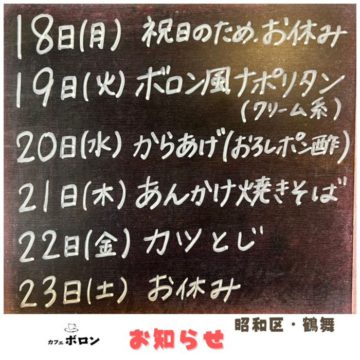 18日(月) 祝日のため、お休み
19日(火) ボロン風ナポリタン
(クリーム系)
20日(水) からあげ(おろしポン酢)
21日(木) あんかけ焼きそば
22日(金) カツとじ
23日(土) お休み
昭和区・鶴舞
カフェ ボロン お知らせ